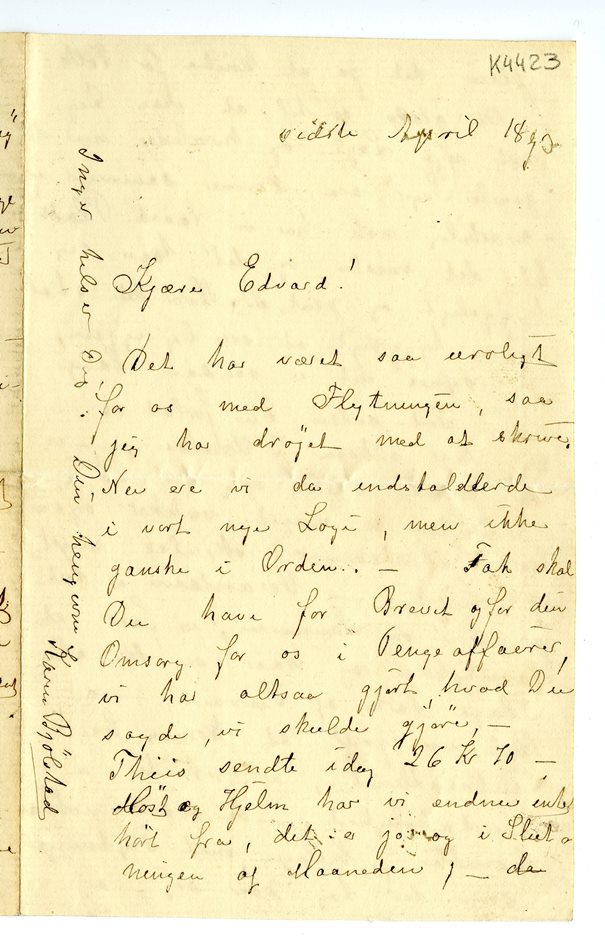 K4423
sidste April 189
Kjære Edvard!
Det har været saa uroligt
for os med Flytningen, saa
jeg har drøjet med at skrive.
Nu ere vi da indstalderede
i vort nye Logi, men ikke
ganske i Orden. – Tak skal
Du have for Brevet og for din
Omsorg for os i Pengeaffaérer,
vi har altsaa gjørt hvad Du
sagde, vi skulde gjøre, –
Thiis sendte idag 26 Kr 70 –
Høst og Hjelm har vi endnu intet
hørt fra, det er jo og i Slut-
ningen af Maaneden, – da
Inger hilser Dig. Din hengivne Karen Bjølstad